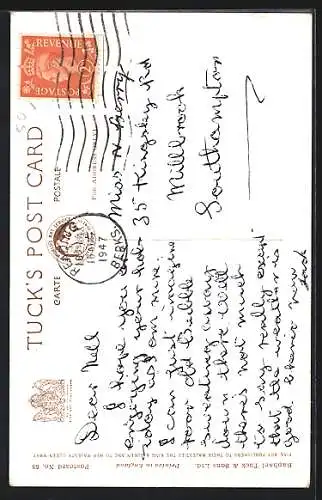 POSTAGE
REVENUE
TUCK'S POST CARD
CARTE POSTALE
READING
BERKS.
1947
Miss N Berry
35 Kingsley Rd
Millbrook
Southampton
Dear Nell
I hope you are
enjoying your holi-
days as I am mine.
I can just imagine
poor old
sweating away
down there. Well
there's not much
to say really except
that the weather is
good cheerio now
Raphael Tuck & Sons Ltd.
Printed in England
Postcard No. 88
FINE ART PUBLISHERS TO THEIR MAJESTIES THE KING AND QUEEN AND TO HER MAJESTY QUEEN MARY